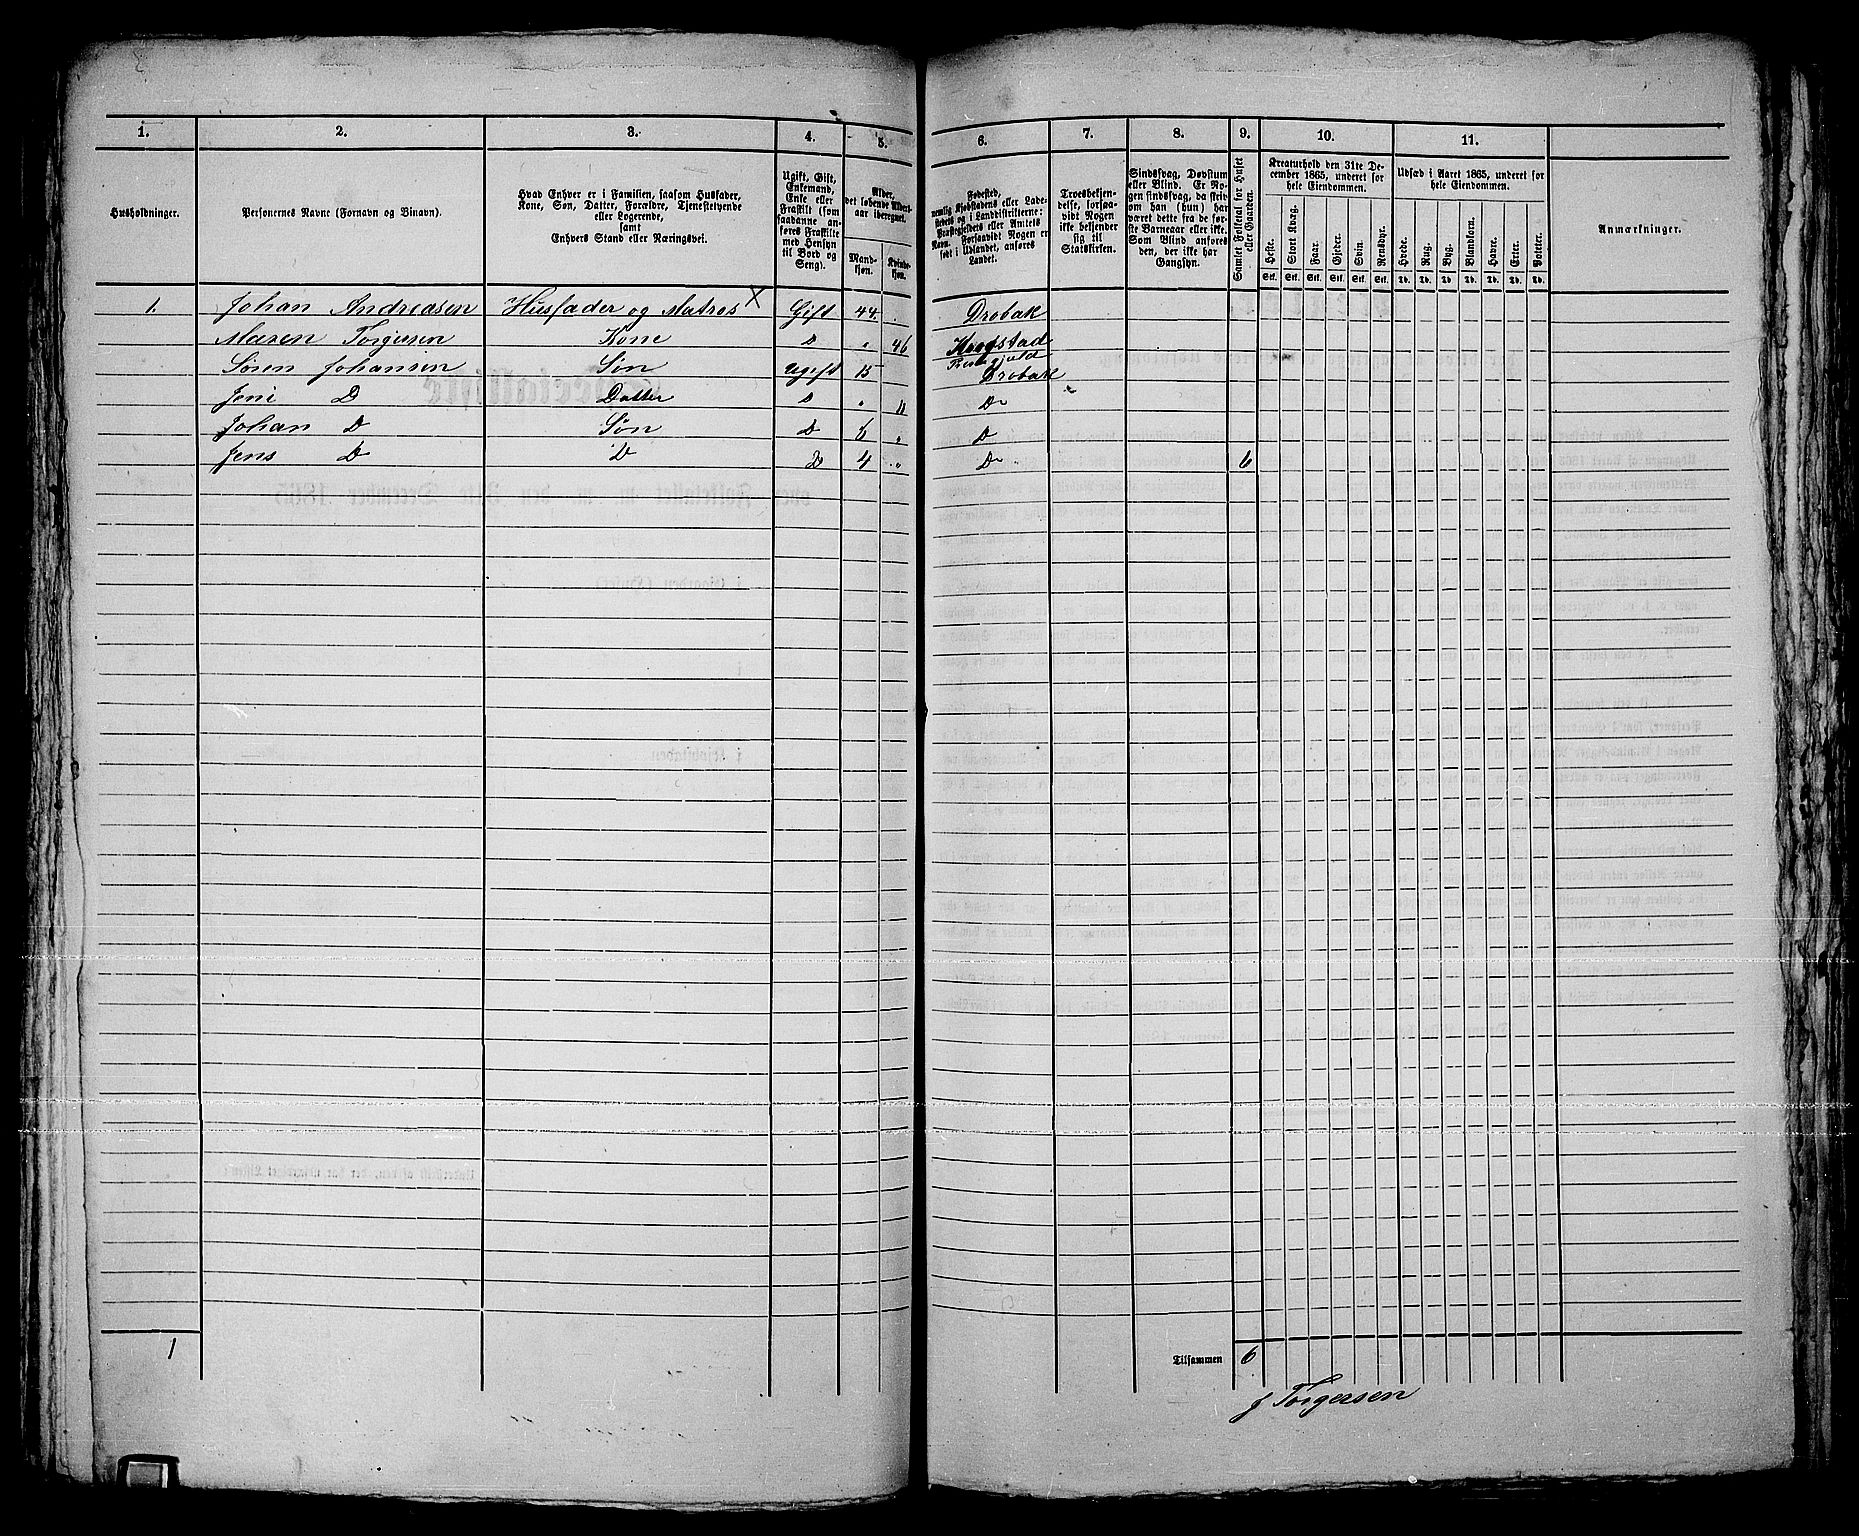 1. 2. 3. 4. 5. 6. 7. 8. 9. 10. 11.
Husholdninger.
Personernes Navne (Fornavn og Binavn).
Hvad Enhver er i Familien, saasom Husfader,
Kone, Søn, Datter, Forældre, Tjenestetyende
eller Logerende,
samt
Enhvers Stand eller Næringsvei.
Ugift, Gift,
Enkemand,
Enke eller
Fraskilt (som
saadanne an-
føres Fraskilte
med Hensyn
til Bord og
Seng).
Alder,
det løbende Alders-
aar iberegnet.
Mand-
kjøn.
Kvinde-
kjøn.
Fødested,
nemlig Kjøbstadens eller Lade-
stedets og i Landdistrikterne:
Præstegjeldets eller Amtets
Navn. Forsaavidt Nogen er
født i Udlandet, anføres
Landet.
Troesbekjen-
delse, forsaa-
vidt Nogen
ikke bekjender
sig til
Statskirken.
Sindssvag, Døvstum
eller Blind. Er No-
gen sindssvag, da skri-
ves om han (hun) har
været dette fra de før-
ste Barneaar eller ikke.
Som Blind anføres
den, der ikke har
Gangsyn.
Samlet Folketal for Huset
eller Gaarden.
Kreaturhold den 31te De-
cember 1865, underet for
hele Eiendommen.
Heste. Stort Kvæg. Faar. Gjeder. Svin. Rensdyr.
Stk. Stk. Stk. Stk. Stk. Stk.
Udsæd i Aaret 1865, underet for
hele Eiendommen.
Hvede. Rug. Byg. Blandkorn. Havre. Erter. Poteter.
Td. Td. Td. Td. Td. Td. Td.
Anmærkninger.
1. Johan Andreasen Husfader og Matros X Gift 44. Drøbak
Maren Torgersen Kone D " 46 Krogstad
Søren Johansen Søn Ugift 15 Drøbak
Jeni D Datter D " 11 Do
Johan D Søn D 6 " D
Jens D D D 4 " Do 6
1
Tilsammen 6
J Torgersen